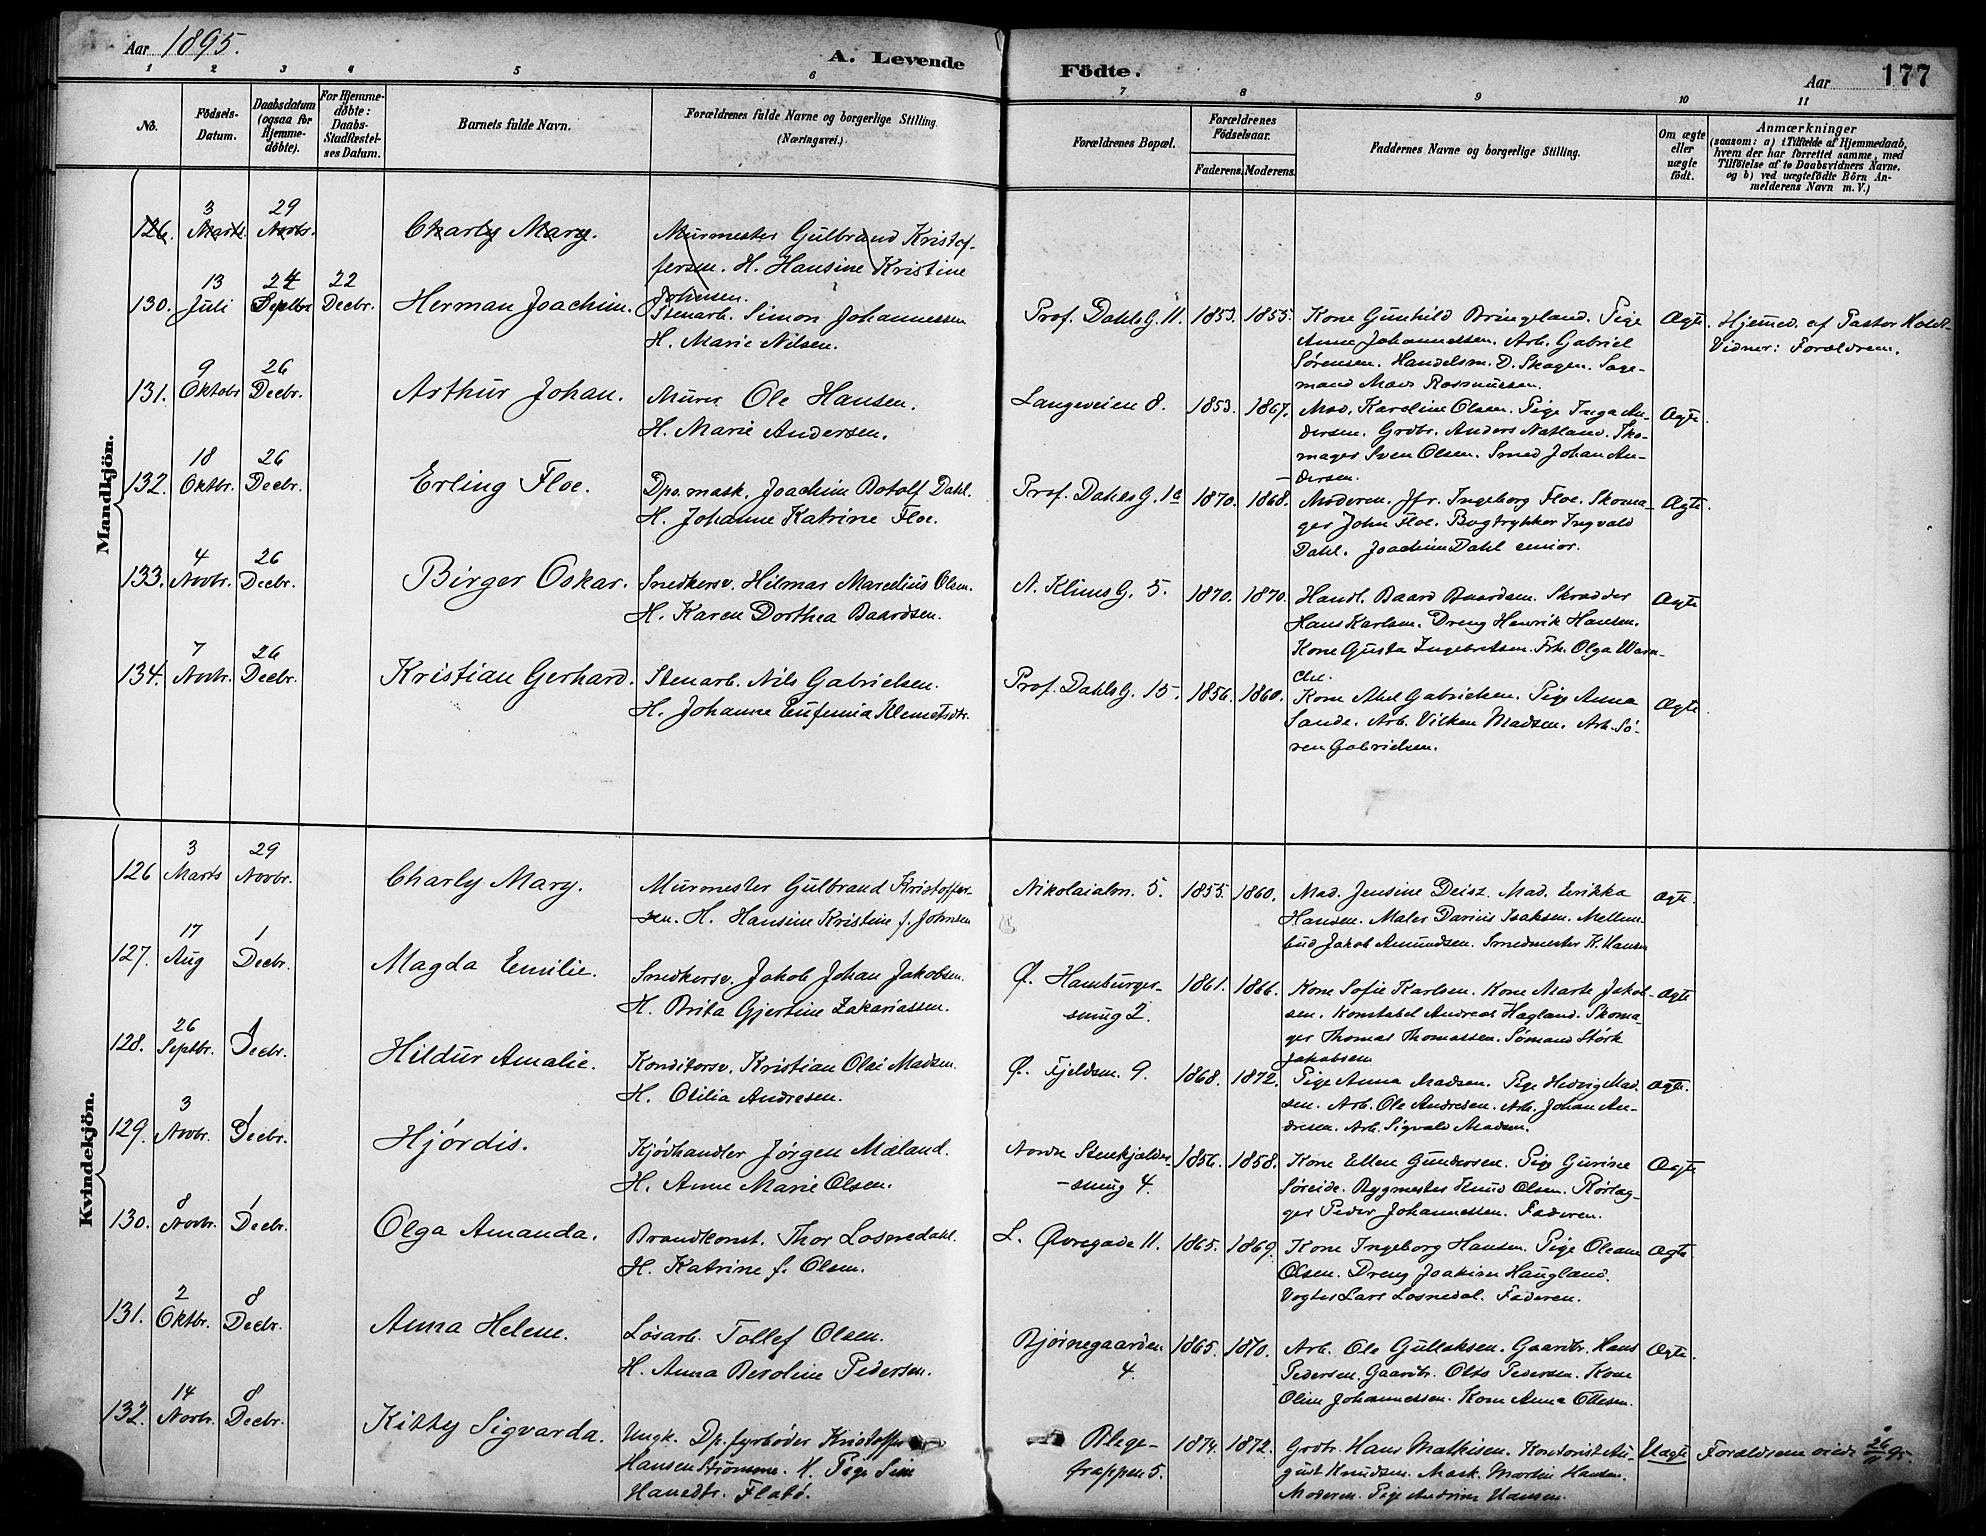 Aar 1895.
A. Levende
Födte.
Aar
177
1 2 3 4 5 6 7 8 9 10 11
No.
Födsels-
Datum.
Daabsdatum
(ogsaa for
Hjemme-
döbte).
For Hjemme-
döbte:
Daabs-
Stadfæstel-
ses Datum.
Barnets fulde Navn.
Forældrenes fulde Navne og borgerlige Stilling
(Næringsvei.)
Forældrenes Bopæl.
Forældrenes
Födselsaar.
Faderens. Moderens.
Faddernes Navne og borgerlige Stilling.
Om ægte
eller
uægte
födt.
Anmærkninger
(saasom: a) i Tilfælde af Hjemmedaab,
hvem der har forrettet samme, med
Tilföielse af to Daabsvidners Navne.
og b) ved uægtefödte Börn An-
melderens Navn m. V.)
Mandkjön.
3 29
126. Marts. Novbr. Charly Mary. Murmester Gulbrand Kristof-
fersen. H. Hansine Kristine
Johnsen.
13 24 22
130. Juli Septbr Decbr. Herman Joachim. Stenarb. Simon Johannessen
H. Marie Nilsen.
Prof. Dahls G. 11. 1853. 1855. Kone Gunhild Bringeland. Pige
Anne Johannessen. Arb. Gabriel
Sørensen. Handelsm. D. Skogen. Sage-
mand Mads Rasmussen.
Ægte. Hjemmed. af Pastor Holdt.
Vidner: Forældrene.
9 26
131. Oktobr Decbr. Arthur Johan. Murer Ole Hansen.
H. Marie Andersen.
Langeveien 8. 1853. 1867. Mad. Karoline Olsen. Pige Inga An-
dersen. Grdbr. Anders Natland. Sko-
mager Sven Olsen. Smed Johan An-
dersen.
Ægte
18 26
132. Oktbr. Decbr. Erling Floe. Dps. mask. Joachim Botolf Dahl.
H. Johanne Katrine Floe.
Prof. Dahls G. 1a 1870. 1868. Moderen. Jfr. Ingeborg Floe. Skoma-
ger John Floe. Bogtrykker Ingvald
Dahl. Joachim Dahl senior.
Ægte.
4 26
133. Novbr. Decbr. Birger Oskar. Snedkersv. Hilmar Marcelius Olsen.
H. Karen Dorthea Baardsen.
N. Klims G. 5. 1870. 1870. Handl. Baard Baardsen. Skrædder
Hans Karlsen. Dreng Henrik Hansen.
Kone Gusta Ingebretsen. Frk. Olga Warn-
cke.
Ægte
7 26
134. Novbr. Decbr. Kristian Gerhard. Stenarb. Nils Gabrielsen.
H. Johanne Eufemia Klemetsdtr.
Prof. Dahls G. 15. 1856. 1860. Kone Gabrielsen. Pige Anna
Sande. Arb. Vilken Madsen. Arb. Sö-
ren Gabrielsen.
Ægte
Kvindekjön.
3 29
126 Marts Novbr. Charly Mary. Murmester Gulbrand Kristoffer-
sen. H. Hansine Kristine f. Johnsen
Nikolaialm. 5. 1855. 1860. Mad. Jensine Deist. Mad. Erikka
Hansen. Maler Darius Isaksen. Mellem-
bud Jakob Amundsen. Smedmester K. Hansen
Ægte.
17 1
127. Aug Decbr. Magda Emilie. Snedkersv. Jakob Johan Jakobsen.
H. Brita Gjertine Zakariassen.
Ø. Hamburger-
smug 2. 1861. 1866. Kone Sofie Karlsen. Kone Marte Jakob-
sen. Konstabel Andreas Hagland. Skoma-
ger Thomas Thomassen. Sömand Störk
Jakobsen
Ægte
26 1
128. Septbr. Decbr. Hildur Amalie. Konditorsv. Kristian Olai Madsen.
H. Otilia Andresen.
Ø. Fjeldsm. 9. 1868. 1872. Pige Anna Madsen. Pige Hedvig Mad-
sen. Arb. Ole Andresen. Arb. Johan An-
dresen. Arb. Sigvald Madsen.
Ægte.
3 1
129. Novbr. Decbr. Hjördis. Kjödhandler Jörgen Mæland.
H. Anne Marie Olsen.
Nordre Stenkjelder-
smug 4. 1856. 1858. Kone Ellen Gundersen. Pige Gurine
Söreide. Bygmester Knud Olsen. Rörlæg-
ger Peder Johannessen. Faderen.
Ægte
8 1
130. Novbr. Decbr. Olga Amanda. Brandkonst. Thor Losnedahl.
H. Katrine f. Olsen.
L. Øvregade 11. 1865. 1869. Kone Ingeborg Hansen. Pige Oleane
Olsen. Dreng Joakim Haugland.
Vogter Lars Losnedal. Faderen.
Ægte
2 8
131. Oktbr. Decbr. Anna Helene. Lösarb. Tollef Olsen.
H. Anna Beroline Pedersen.
Bjørnegaarden
4. 1865. 1870. Arb. Ole Gullaksen. Gaardbr. Hans
Pedersen. Gaardbr. Pedersen. Kone
Oline Johannessen. Kone Anna Ottesen.
Ægte.
14 8
132. Novbr. Decbr. Kitty Sigvarda. Ungk. Dp.fyrböder Kristoffer
Hansen Strömme. Pige Sine
Hansdtr. Flatö.
Blege-
trappen 5. 1874. 1872. Grdbr. Hans Mathisen. Kondorist Au-
gust Knudsen. Mask. Martin Hansen.
Moderen. Pige Andrine Hansen.
Uægte Forældrene viede 26/11 95.